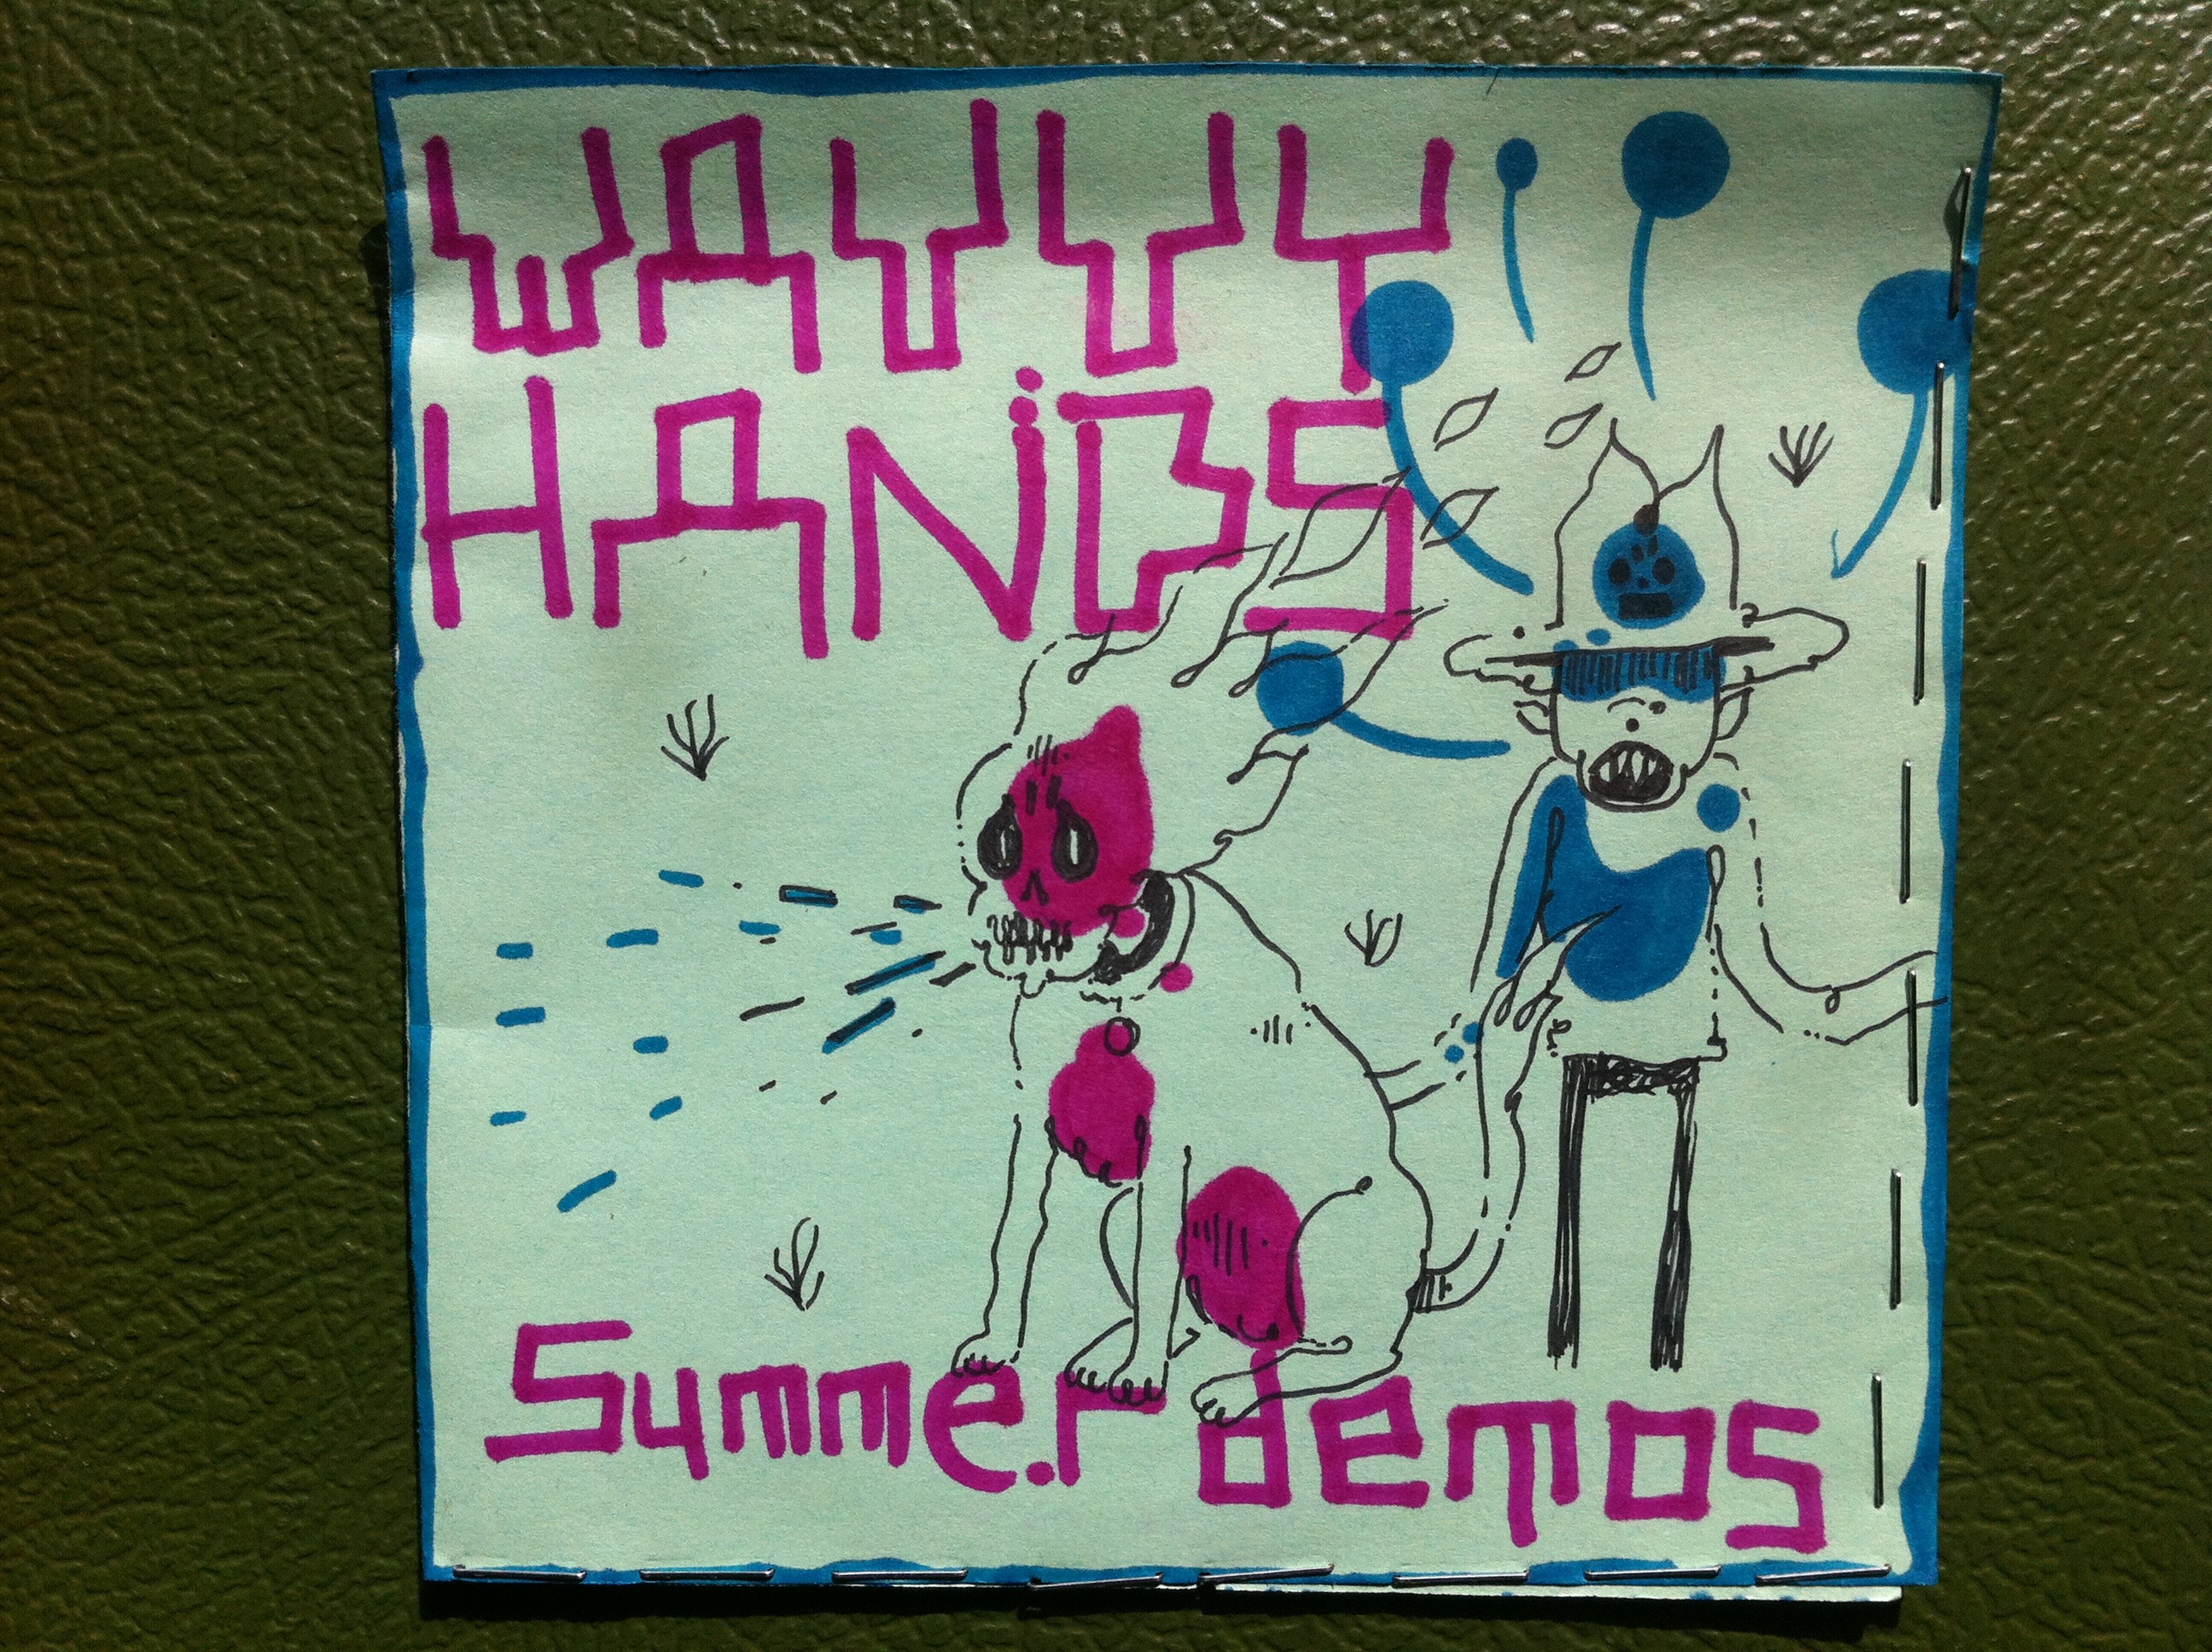 WAVVY
HANDS
Summer demos